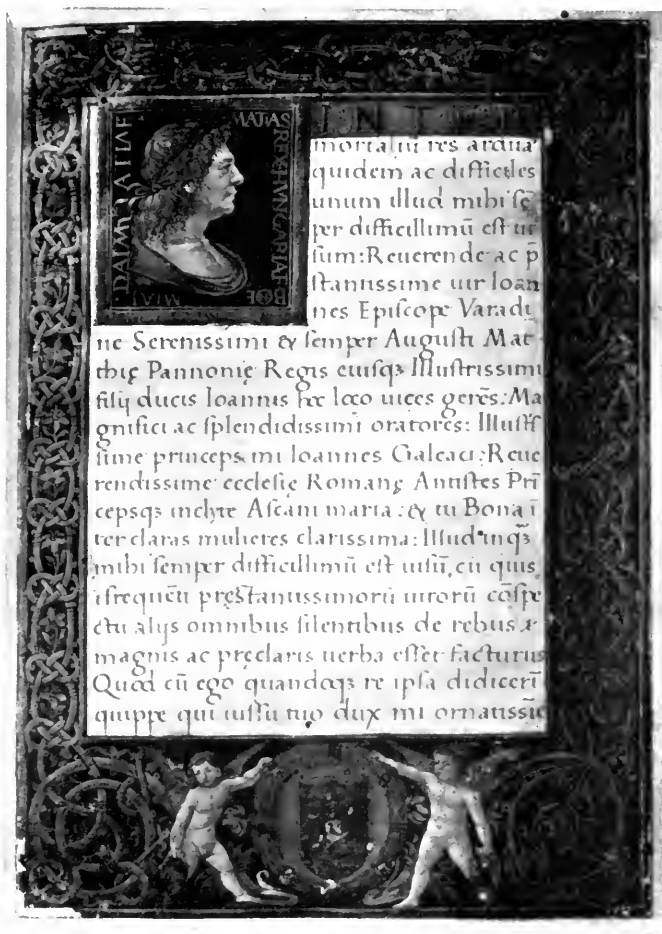 INTER
MATIAS REX HVNGARIAE BOE DALMATIAE
mortaliū res ardua
quidem ac difficiles
unum illud mihi sę
per difficillimū est ui
sum: Reuerende ac p̄
stantissime uir Ioan
nes Episcope Varadi
ne Serenissimi & semper Augusti Mat
thię Pannonię Regis eiusqꝫ Illustrissimi
filij ducis Ioannis hoc loco uices gerēs: Ma
gnifici ac splendidissimi oratores: Illustſ
sime princeps mi Ioannes Galeaci: Reue
rendissime ecclesię Romanę Antistes Prī
cepsqꝫ inclyte Ascani maria: & tu Bona ī
ter claras mulieres clarissima: Illud inqꝫ
mihi semper difficillimū est uisū, cū quis
ī frequēti pręstantissimorū uirorū cōspe
ctu alijs omnibus silentibus de rebus
magnis ac pręclaris uerba esset facturus
Quod cū ego quandoqꝫ re ipsa didicerī
quippe qui iussu tuo dux mi ornatissie